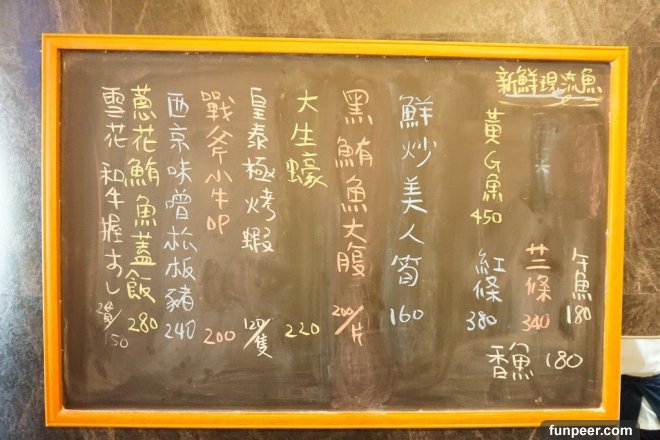 新鮮現流魚
午魚 180
廿二條 340
紅條 380
黃G魚 450
香魚 180
鮮炒美人筲 160
黑鮪魚大腹 200/片
大生蠔 220
皇泰極烤蝦 120/隻
戰斧小牛OP 200
西京味噌松板豬 240
蔥花鮪魚蓋飯 280
雪花和牛握すし 2貫/150
funpeer.com